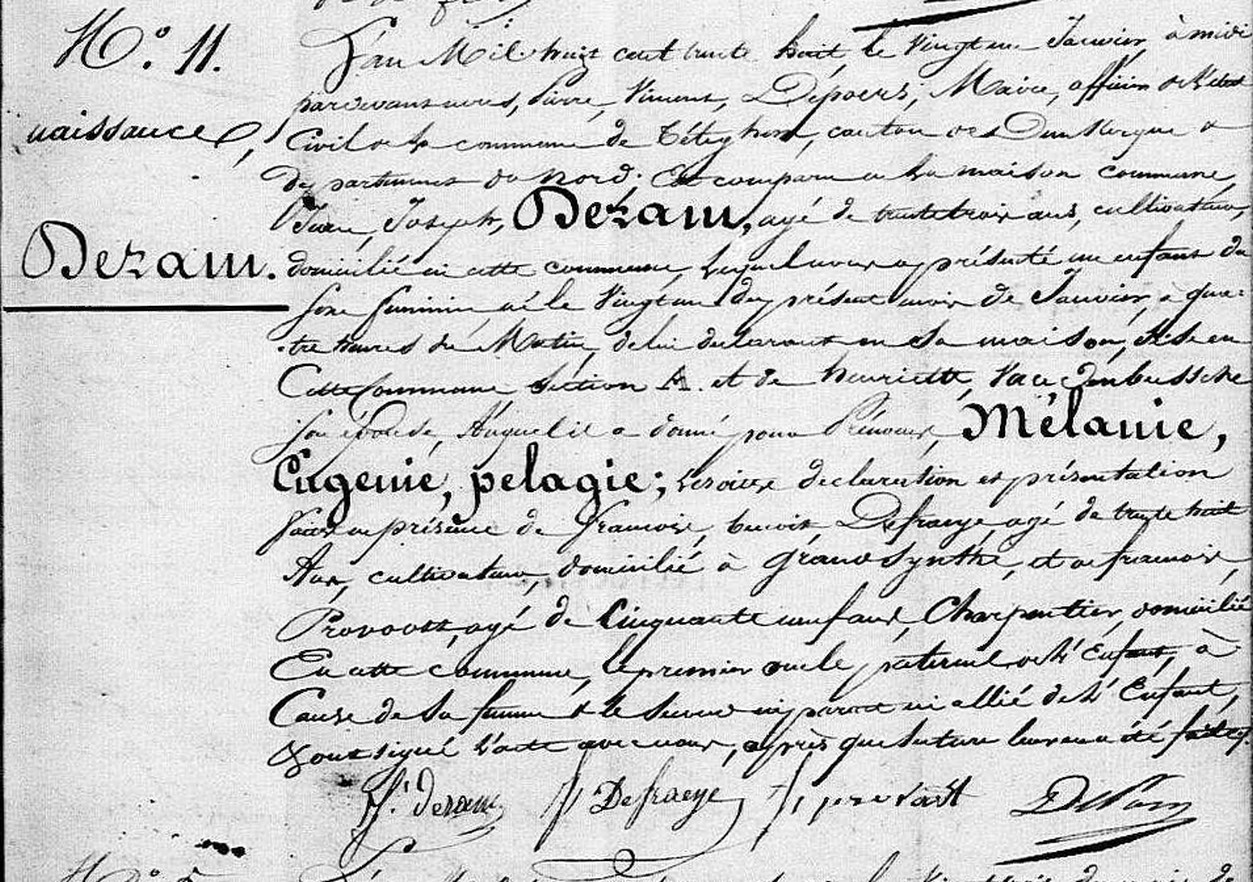 N.° 11.
naissance,
Dezam.
L'an Mil huit cent trente huit, le Vingt un Janvier, à midi
pardevant nous, Pierre, Vincent, Depoers, Maire, officier de l'état
Civil de la commune de Téteghem, canton de Dunkerque
département du Nord; Est comparu en la maison commune,
Joseph, Dezam, agé de trente trois ans, cultivateur,
domicilié en cette commune, lequel nous a présenté un enfant du
sexe feminin né le Vingt un du présent mois de Janvier, à qua-
tre heures du Matin, de lui declarant en sa maison, sise en
Cette Commune section A. et de henriette, Vandenbussche
son épouse, Auquel il a donné pour Prénoms, Mélanie,
Eugenie, pelagie; les dites declaration et présentation
faites en présence de francois, benoit Defraeye agé de trente huit
Ans, cultivateur, domicilié à grand Synthe, et de francois,
Provoost, agé de Cinquante neuf ans, Charpentier, domicilié
En cette commune, le premier oncle paternel de l'Enfant, à
Cause de sa femme & le second ni parent ni allié de l'Enfant,
& ont signé l'acte avec nous, après que lecture leur en a été faite.
J. J. dezam J Defraeye f, provost